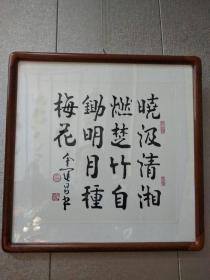 曉汲清湘
燃楚竹自
鋤明月種
梅花